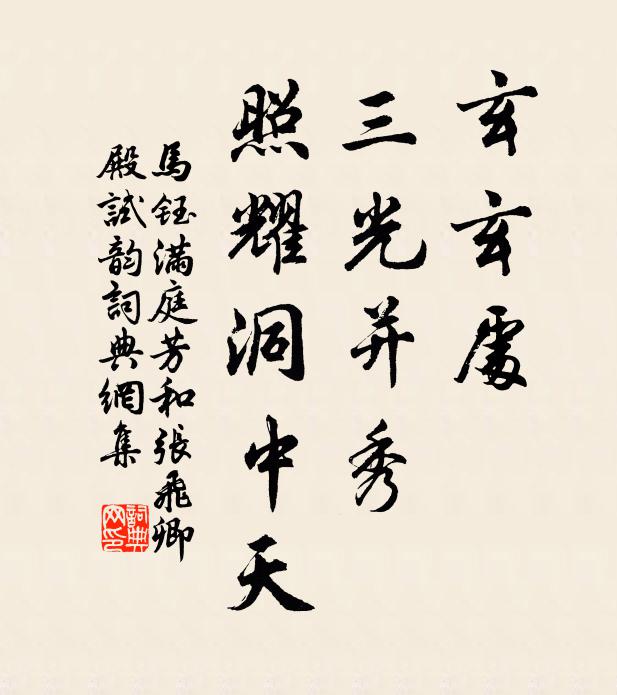 玄玄處
三光并秀
照耀洞中天
馬鈺滿庭芳和張飛卿
殿試韵詞典網集
詞典网印